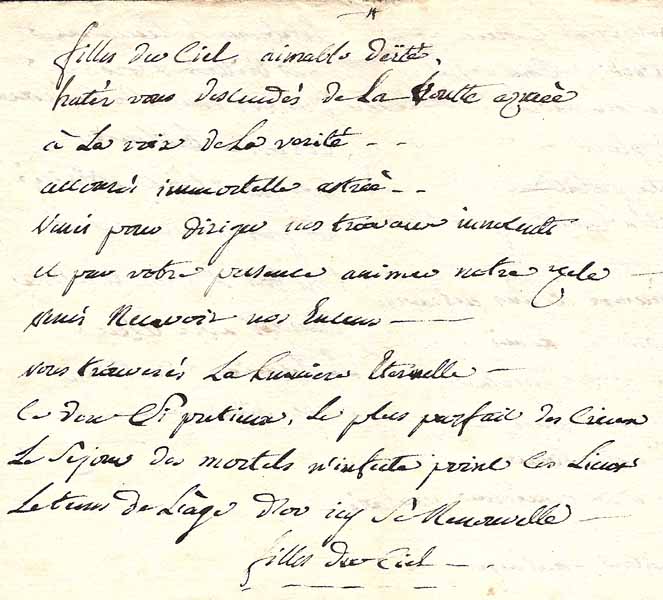 filles du Ciel, aimable deïté,
hatés vous descendés de La voutte azuréé
à La voix de La verité - -
accourés immortelle astréé - -
Venis pour diriger nos travaux innocents
et par votre presence animer notre zele -
venés Recevoir nos Encens -
vous trouverés La Lumiere Eternelle -
Ce don Si pretieux, Le plus parfait des Cieux
Le Sejour des mortels n'infecte point ces Lieux
Le tems de L'âge d'or icy Se Renouvelle -
filles du Ciel -